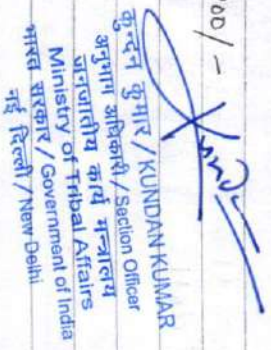 00/-
कुन्दन कुमार / KUNDAN KUMAR
अनुभाग अधिकारी / Section Officer
जनजातीय कार्य मन्त्रालय
Ministry of Tribal Affairs
भारत सरकार / Government of India
नई दिल्ली / New Delhi